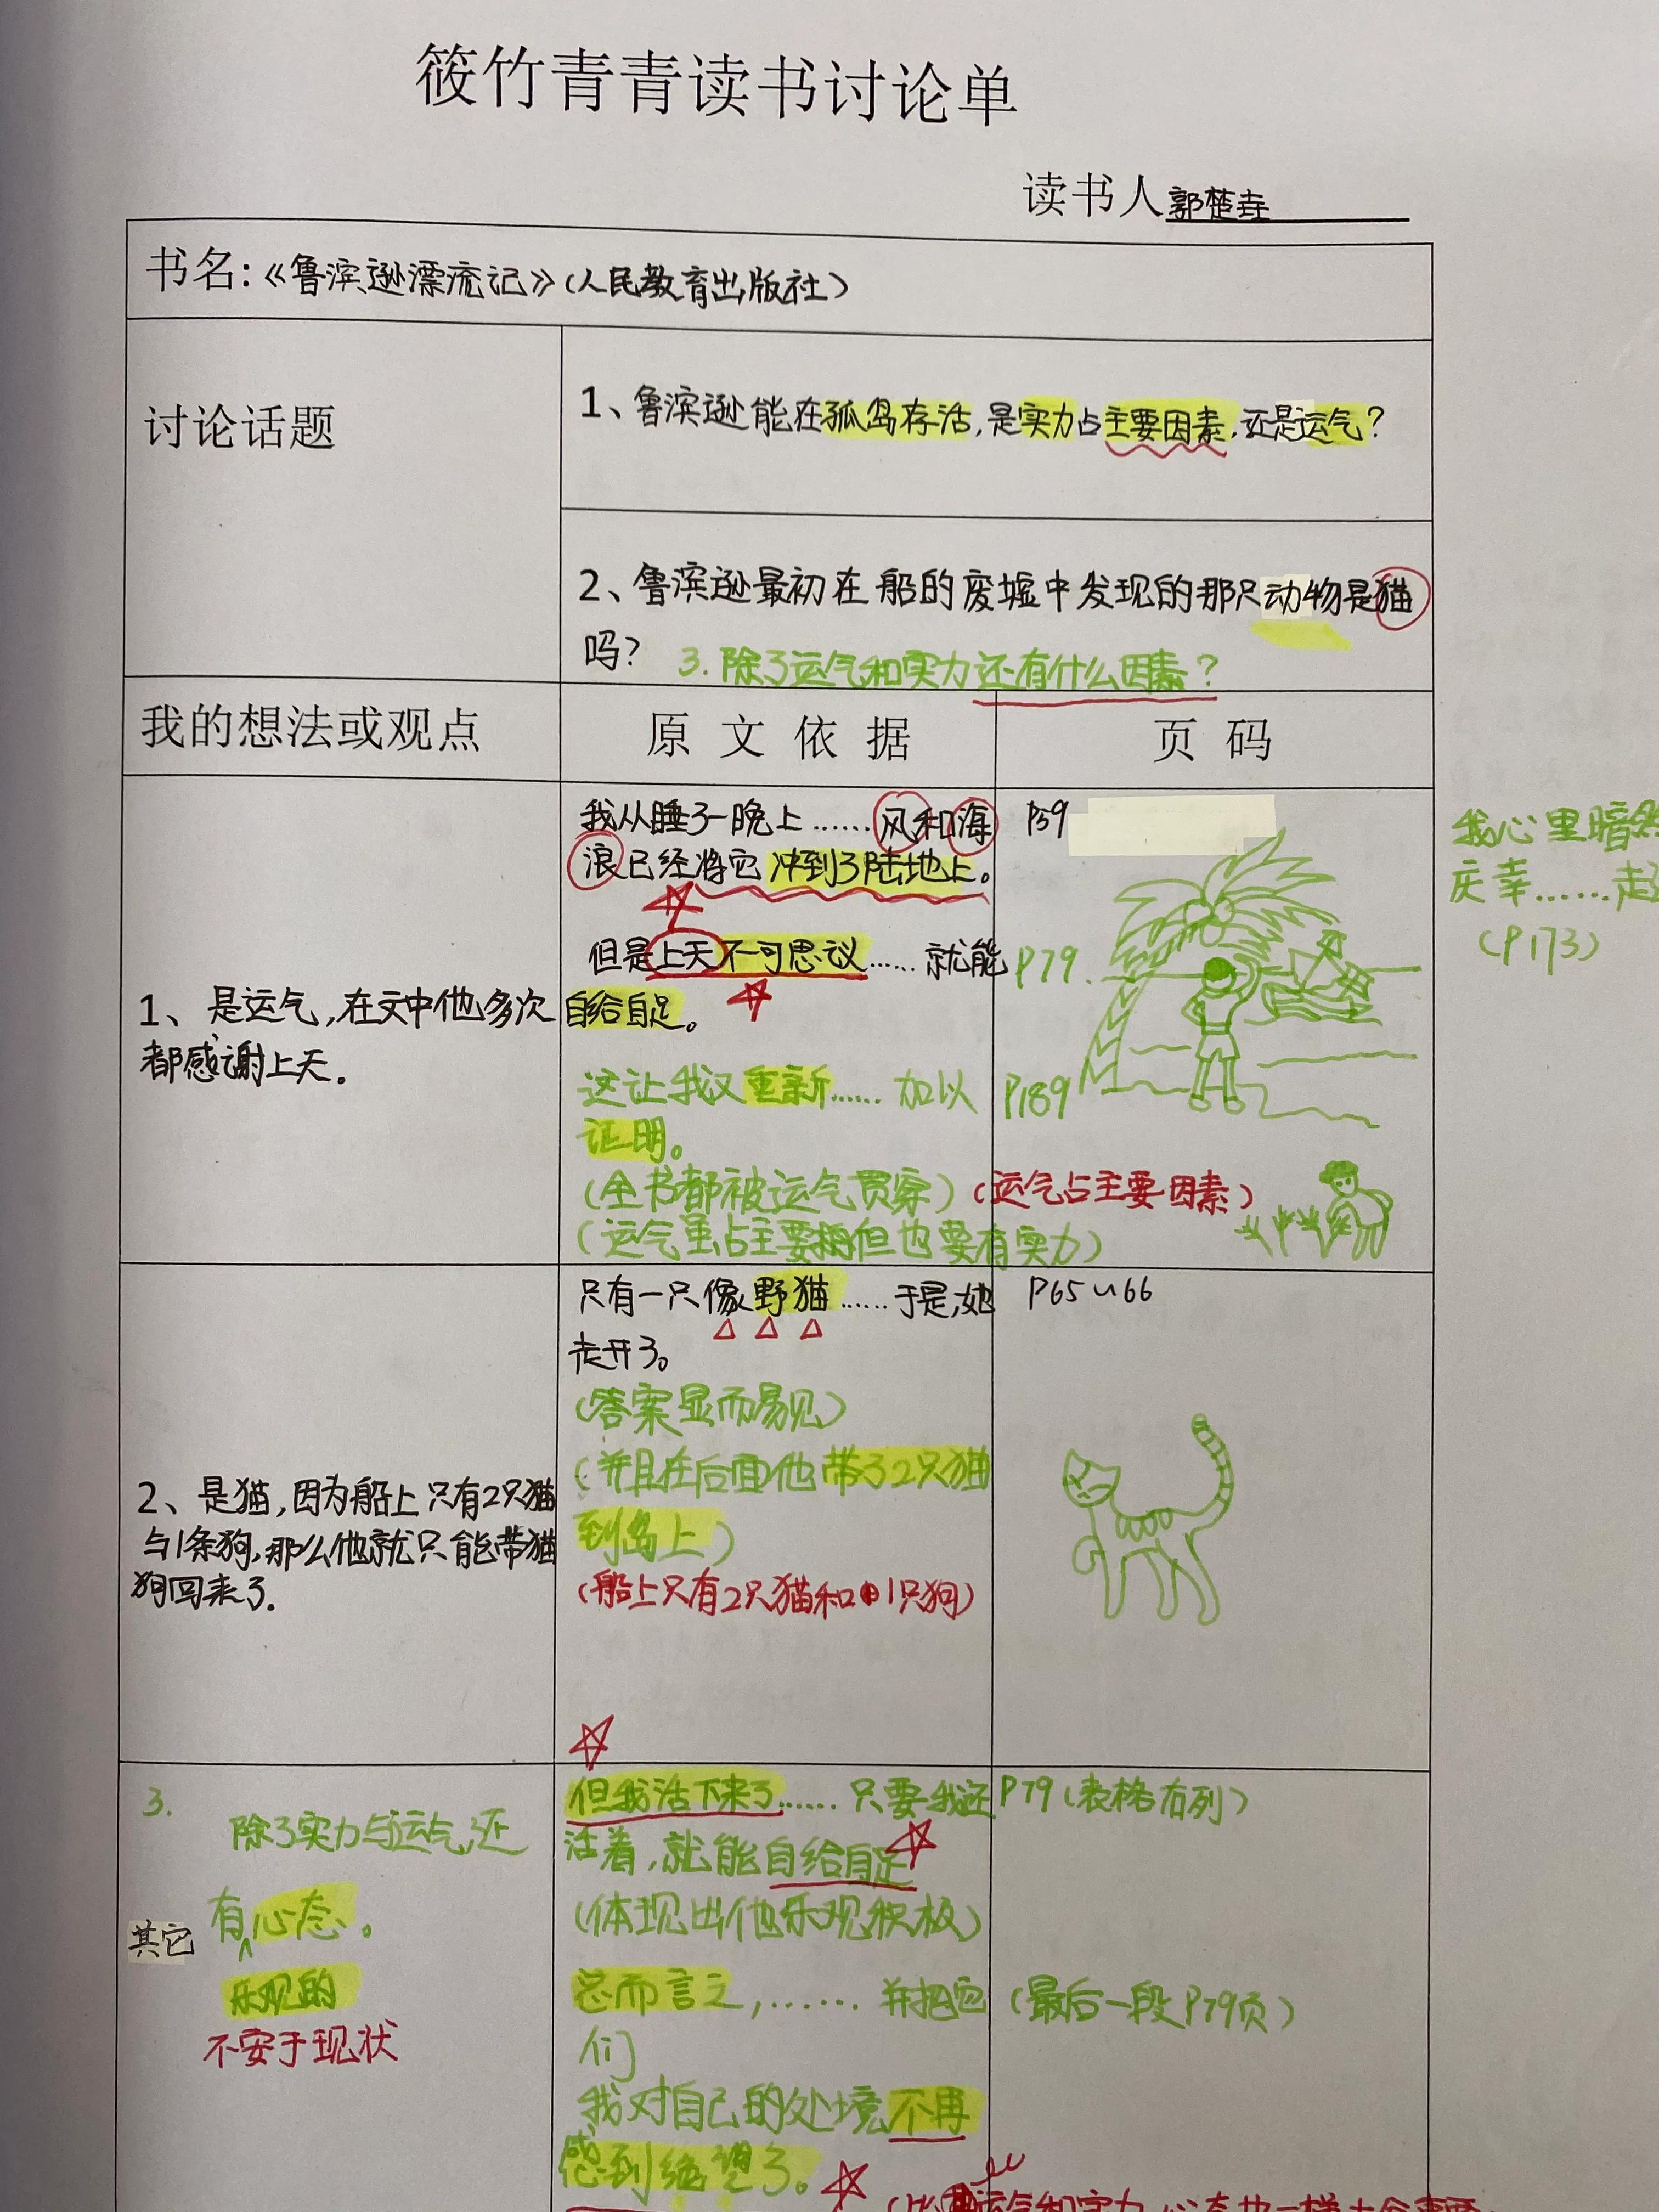 筱竹青青读书讨论单
读书人 郭楚垚
书名：《鲁滨逊漂流记》（人民教育出版社）
讨论话题
1、鲁滨逊能在孤岛存活，是实力占主要因素，还是运气？
2、鲁滨逊最初在船的废墟中发现的那只动物是猫
吗？
3. 除了运气和实力还有什么因素？
我的想法或观点
原文依据
页码
1、是运气，在文中他多次
都感谢上天。
我从睡了一晚上……风和海
浪已经将它冲到了陆地上。
P59
但是上天不可思议……就能
自给自足。
P79
这让我又重新……加以
证明。
P189
（全书都被运气贯穿）
（运气占主要因素）
（运气虽占主要但也要有实力）
我心里暗
庆幸……
（P173）
2、是猫，因为船上只有2只猫
与1条狗，那么他就只能带猫
狗回来了。
只有一只像野猫……于是，她
走开了。
P65~66
（答案显而易见）
（并且在后面他带了2只猫
到岛上）
（船上只有2只猫和1只狗）
3.
除了实力与运气，还
有心态。
乐观的
其它
不安于现状
但我活下来了……只要我还
活着，就能自给自足
P79（表格右列）
（体现出他乐观积极）
总而言之，……并把它
们
（最后一段P79页）
我对自己的处境不再
感到绝望了。